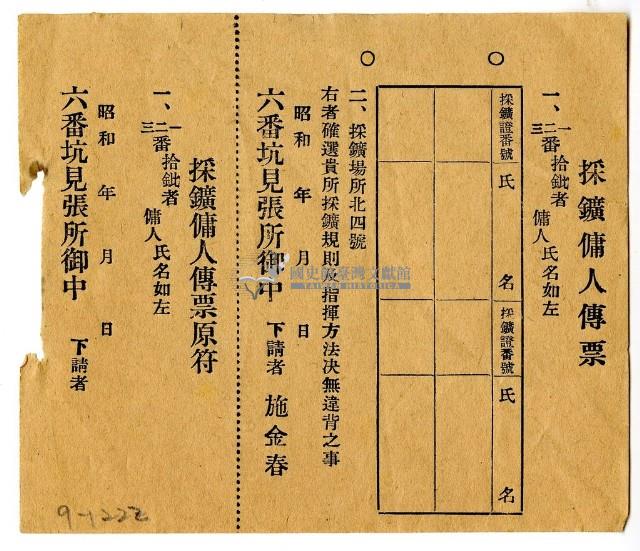 採鑛傭人傳票
一、一二三番拾鈚者 傭人氏名如左
採鑛證番號 氏 名 採鑛證番號 氏 名
二、採鑛場所北四號
右者確選貴所採鑛規則及指揮方法決無違背之事
昭和 年 月 日
六番坑見張所御中 下請者 施金春
採鑛傭人傳票原符
一、一二三番拾鈚者 傭人氏名如左
昭和 年 月 日
六番坑見張所御中 下請者
國史館臺灣文獻館
TAIWAN HISTORICA
9-1222